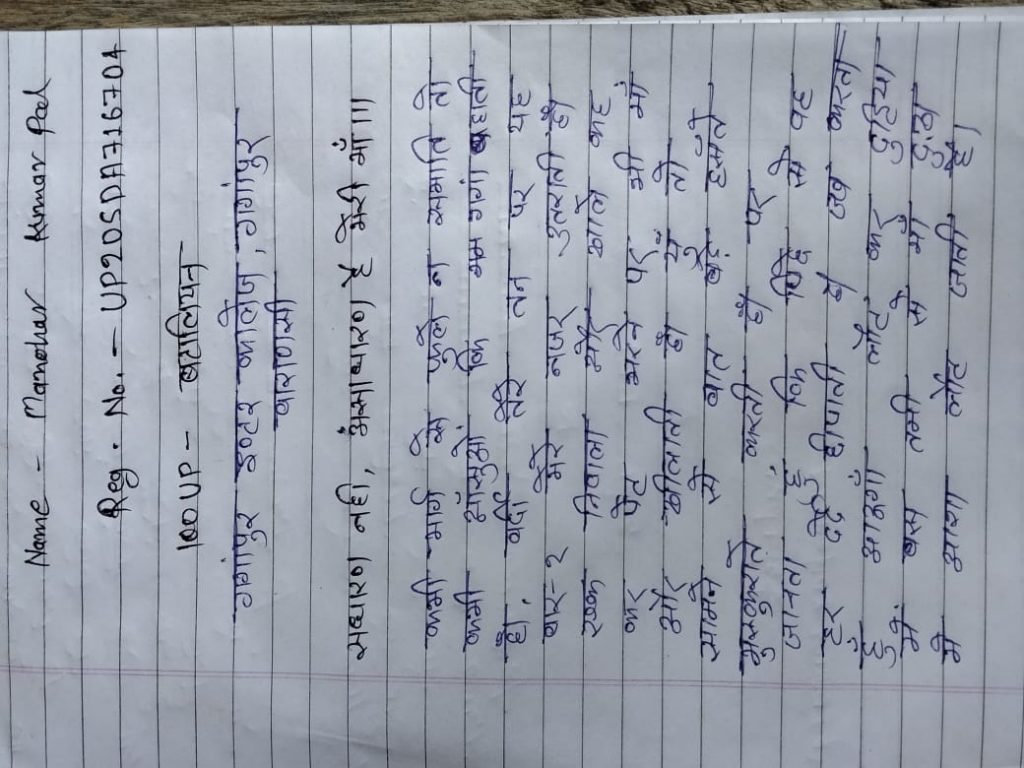 Name - Manohar Kumar Pal
Reg. No. - UP20SDA7716704
100UP - बटालियन
गगांपुर इण्टर कालेज, गगांपुर
वाराणसी
सधारण नही, असाधारण है मेरी माँ।।।
कभी भार्ग मे फुले न समाति तो
कभी आँसुओं कि गम गगां बहती
है। वर्दी तेरे तन पर यह
बार-२ मेरे नजर उतारती है
एक निवाला और खाले कह
कर पेट भरने पर भी माँ
और खीलाती है यूँ तो
सामने से बात बेहद हसते
मुस्कुराते करती है पर
जानता हूँ कि पिछे से वह
हर दर्द छीपाती है जब कहता
हुँ आऊगां लौट कर दुहिया
मे बस तभी से माँ दुख
मे आधा लौट जाती है।